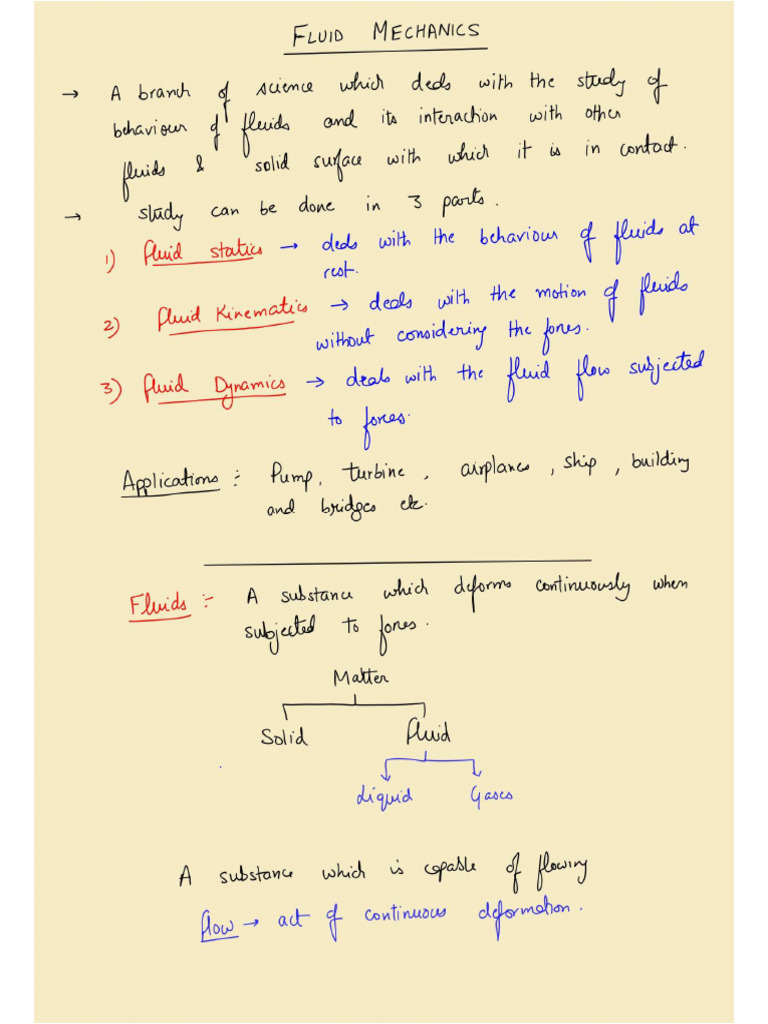 FLUID MECHANICS
→ A branch of science which deals with the study of
behaviour of fluids and its interaction with other
fluids & solid surface with which it is in contact.
→ study can be done in 3 parts.
1) fluid statics → deals with the behaviour of fluids at
rest.
2) fluid Kinematics → deals with the motion of fluids
without considering the forces.
3) fluid Dynamics → deals with the fluid flow subjected
to forces.
Applications :- Pump, turbine, airplanes, ship, building
and bridges etc.
Fluids :- A substance which deforms continuously when
subjected to forces.
Matter
Solid fluid
Liquid Gases
A substance which is capable of flowing
flow → act of continuous deformation.